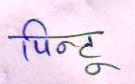 पिन्टू